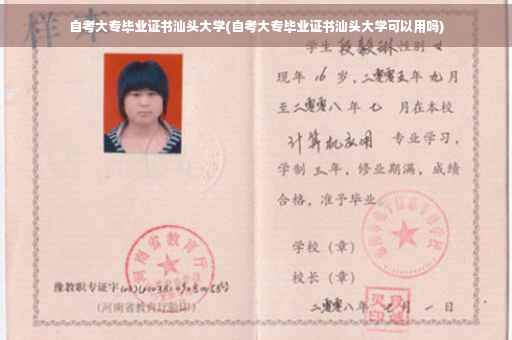 自考大专毕业证书汕头大学(自考大专毕业证书汕头大学可以用吗)
样本
学生 段毅琳 性别 女
现年 16 岁，二零零五年 九月
至二零零八年 七 月在本校
计算机应用 专业学习，
学制 三 年，修业期满，成绩
合格，准予毕业
学校（章）
校长（章）
河南省教育厅
豫教职专证字
(河南省教育厅验印)
二零零八年 七 月 一 日